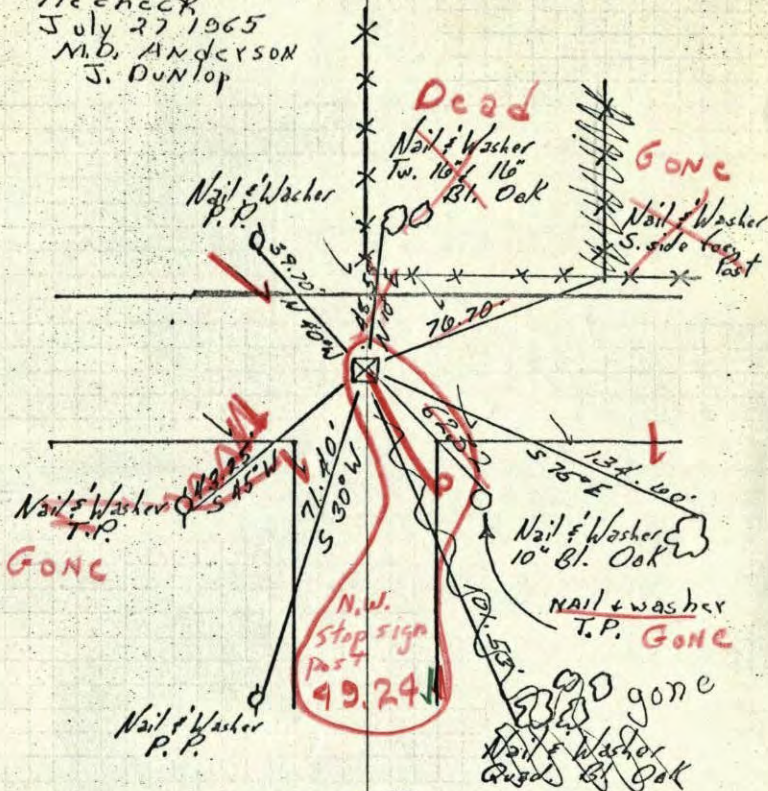 Recheck
July 27 1965
M.D. Anderson
J. Dunlop
Dead
Nail & Washer
Tw. 16" & 16"
Bl. Oak
Gone
Nail & Washer
S. side
Post
Nail & Washer
P.P.
39.70'
N 40° W
45.
N 10
76.70'
62.
S 76° E
134.60'
43.25'
S 45° W
71.40'
S 30° W
Nail & Washer
T.P.
GONE
Nail & Washer
10" Bl. Oak
Nail + washer
T.P.
GONE
N.W.
Stop sign
post
49.24
101.53'
gone
Nail & Washer
P.P.
Nail & Washer
Quad. Bl. Oak